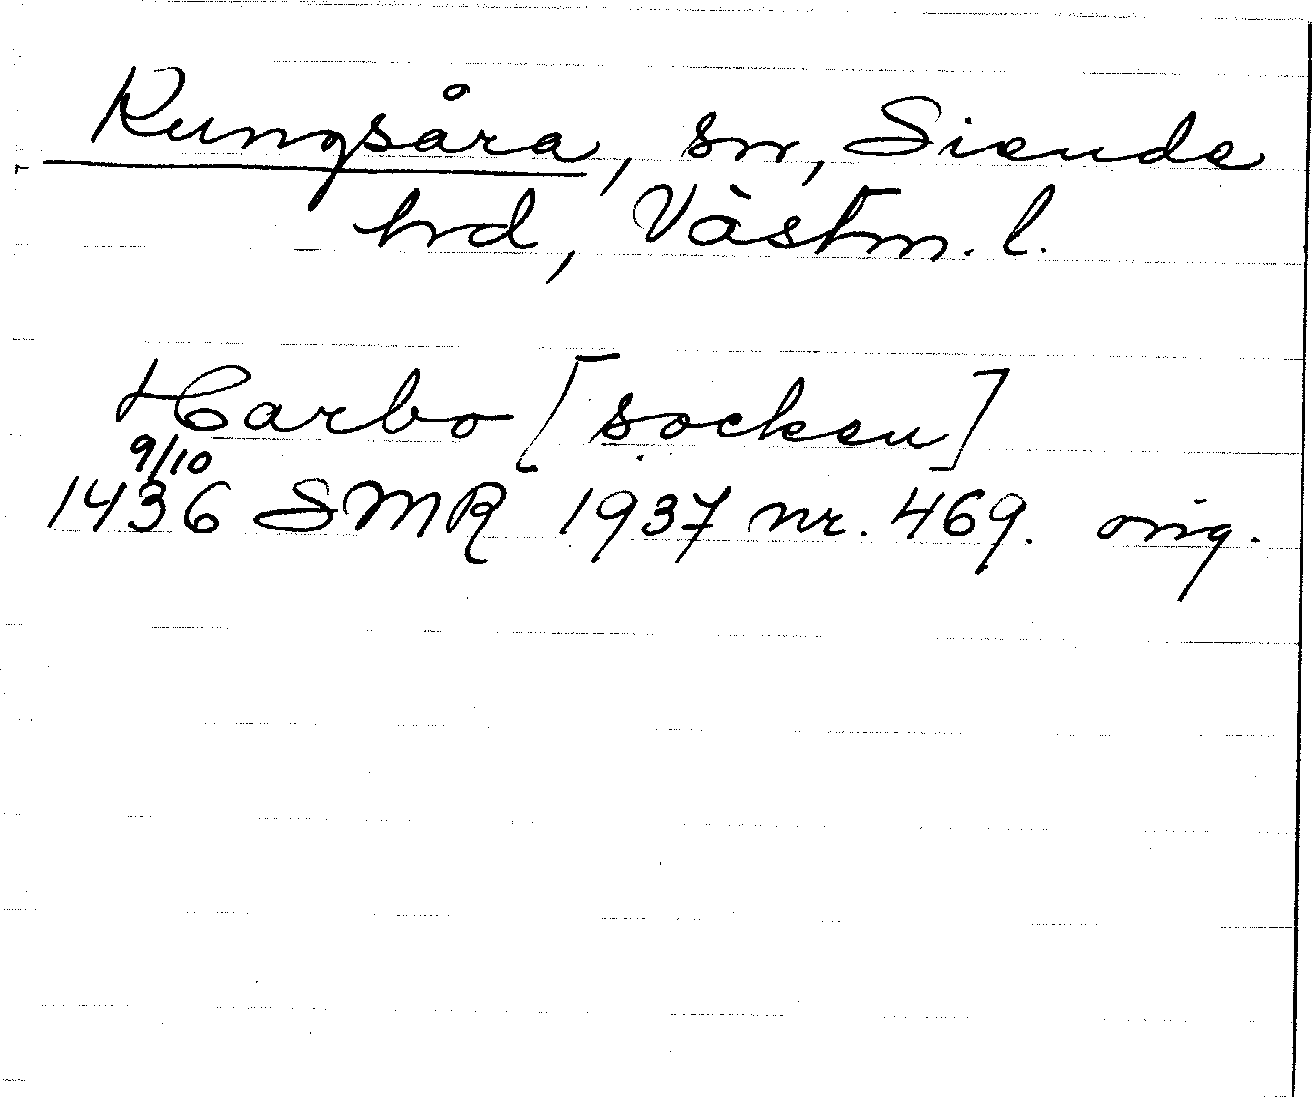 Kungsåra, sn, Siende
hrd, Västm. l.
Harbo [socken]
9/10
1436 SMR 1937 nr. 469. orig.